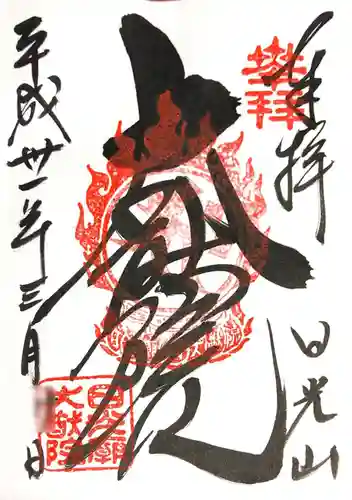 奉拝
日光山
大猷院
平成卅一年三月 日
日光廟
大猷院